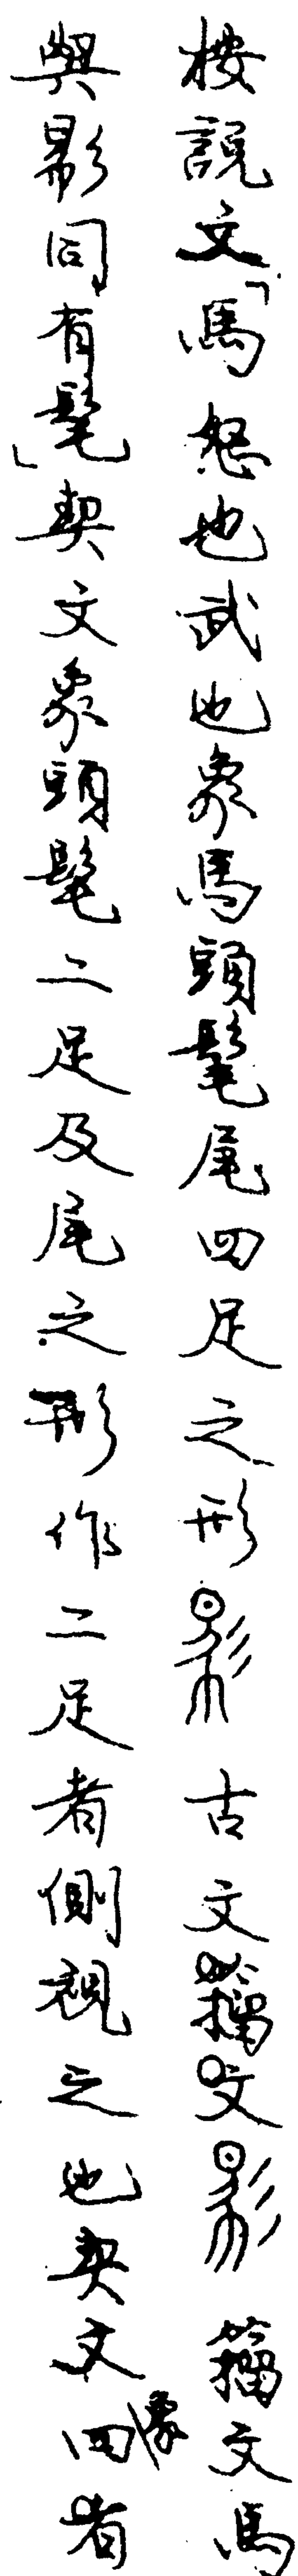 桉說文「馬怒也武也象馬頭髦尾四足之形古文籀文籀文馬
與影同有髦」契文象頭髦二足及尾之形作二足者側視之也契文象四者